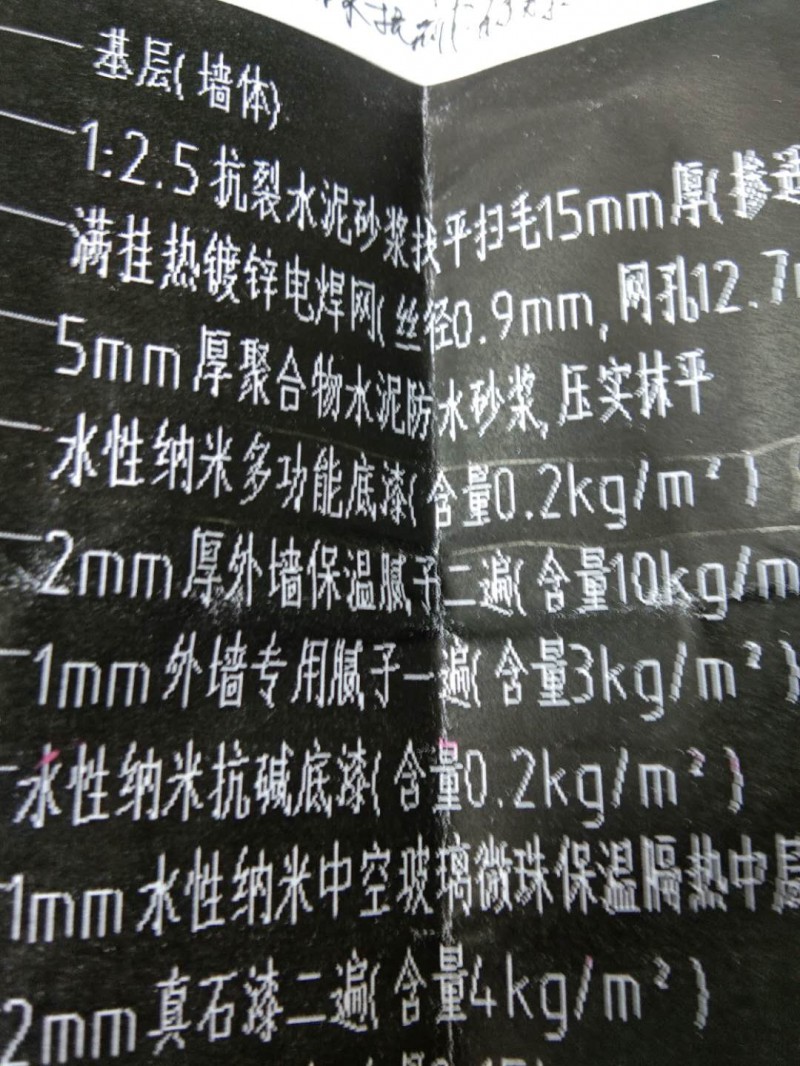 基层(墙体)
1:2.5抗裂水泥砂浆找平扫毛15mm厚(掺
满挂热镀锌电焊网(丝径0.9mm,网孔12.7
5mm厚聚合物水泥防水砂浆,压实抹平
水性纳米多功能底漆(含量0.2kg/m²)
2mm厚外墙保温腻子二遍(含量10kg/m
1mm外墙专用腻子一遍(含量3kg/m²)
水性纳米抗碱底漆(含量0.2kg/m²)
1mm水性纳米中空玻璃微珠保温隔热中层
2mm真石漆二遍(含量4kg/m²)